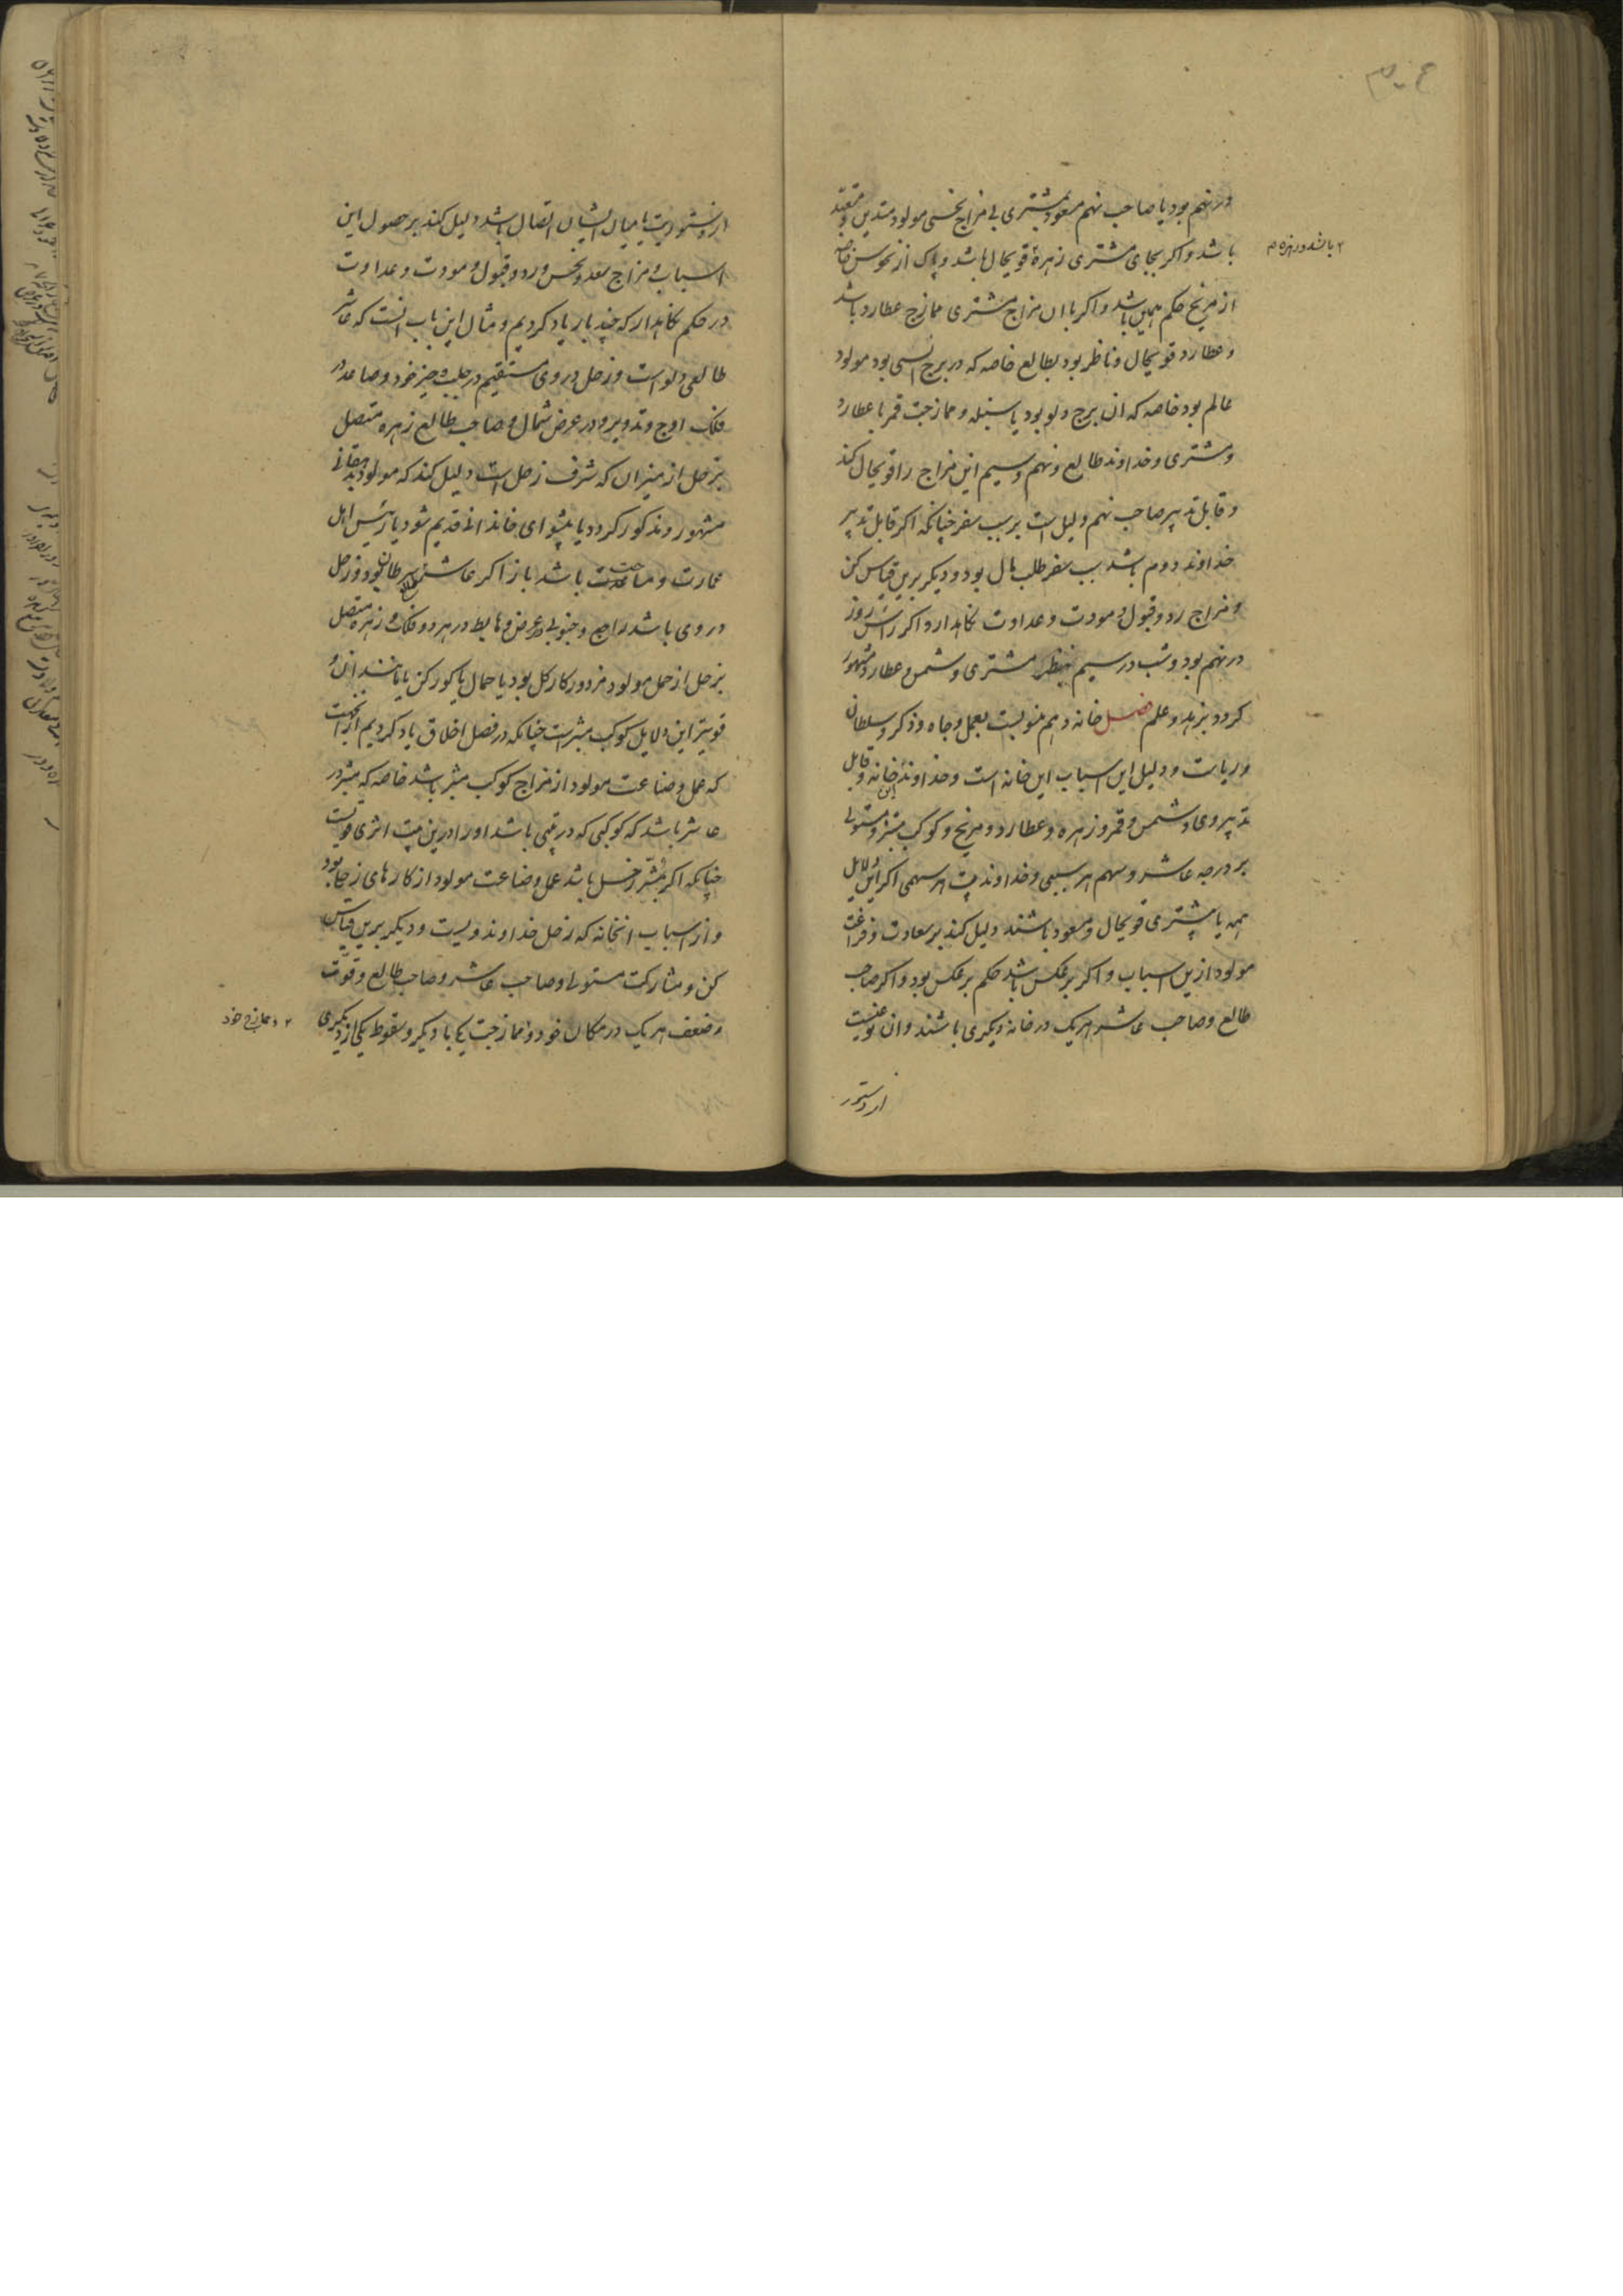 در نهم بود یا صاحب نهم مسعود بمشتری بی مزاج نحسی مولود متدین و متعبد
باشد و اکر بجای مشتری زهره قویحال باشد و پاک از نحوس خاصه
از مریخ حکم همین باشد و اکر با ان مزاج مشتری ممازج عطارد باشد
و عطارد قویحال و ناظر بود بطالع خاصه که در برج انسی بود مولود
عالم بود خاصه که ان برج دلو بود یا سنبله و ممازجت قمر با عطارد
و مشتری و خداوند طالع و نهم و سیم این مزاج را قویحال کند
و قابل تدبیر صاحب نهم دلیل است بر سبب سفر چنانکه اکر قابل تدبیر
خداوند دوم باشد سبب سفر طلب مال بود و دیکر برین قیاس کن
و مزاج رد و قبول و مودت و عداوت نکاهدار و اکر راس روز
در نهم بود و شب در سیم بنظر مشتری و شمس و عطارد مشهور
کردد بزهد و علم فصل خانه دهم منسوبست بعمل و جاه و ذکر و سلطان
و ریاست و دلیل این اسباب این خانه است و خداوند این خانه و قابل
تدبیر وی و شمس و قمر و زهره و عطارد و مریخ و کوکب مبتز و مستولی
بر درجه عاشر و سهم هر سببی و خداوند بیت هر سهمی اکر این دلایل
همه یا بیشتری قویحال و مسعود باشند دلیل کند بر سعادت و فراغت
مولود ازین اسباب و اکر بر عکس باشد حکم بر عکس بود و اکر صاحب
طالع و صاحب عاشر هر یک در خانه دیکری باشند و ان نوعیست
از دستور
از دستوریت یا میان ایشان اتصال باشد دلیل کند بر حصول این
اسباب و مزاج سعد و نحس و رد و قبول و مودت و عداوت
در حکم نکاهدار که چند بار یاد کردیم و مثال این باب انست که عاشر
طالعی دلو است و زحل در وی مستقیم در حلب و حیز خود و صاعد در
فلک اوج و تدویر و در عرض شمال و صاحب طالع زهره متصل
بزحل از میزان که شرف زحل است دلیل کند که مولود بدهقانی
مشهور و مذکور کردد یا پیشوای خاندانی قدیم شود یا رئیس اهل
عمارت و مساحت باشد باز اکر عاشر سرطان بود و زحل
در وی باشد راجع و جنوبی در عرض و هابط در هر دو فلک و زهره متصل
بزحل از حمل مولود مزدور کار کل بود یا حمال یا کورکن یا مانند ان و
قویتر این دلایل کوکب مبتز است چنانکه در فصل اخلاق یاد کردیم از انجهت
که عمل و صناعت مولود از مزاج کوکب مبتز باشد خاصه که مبتز در
عاشر باشد که کوکبی که در بیتی باشد او را در ین بیت اثری قویست
چنانکه اکر مبتز زحل باشد عمل و صناعت مولود از کارهای زحل بود
و از اسباب انخانه که زحل خداوند ویست و دیکر برین قیاس
کن و مشارکت مستولی و صاحب عاشر و صاحب طالع و قوت
و ضعف هر یک در مکان خود و ممازجت یکی با دیکر و سقوط یکی از دیکری